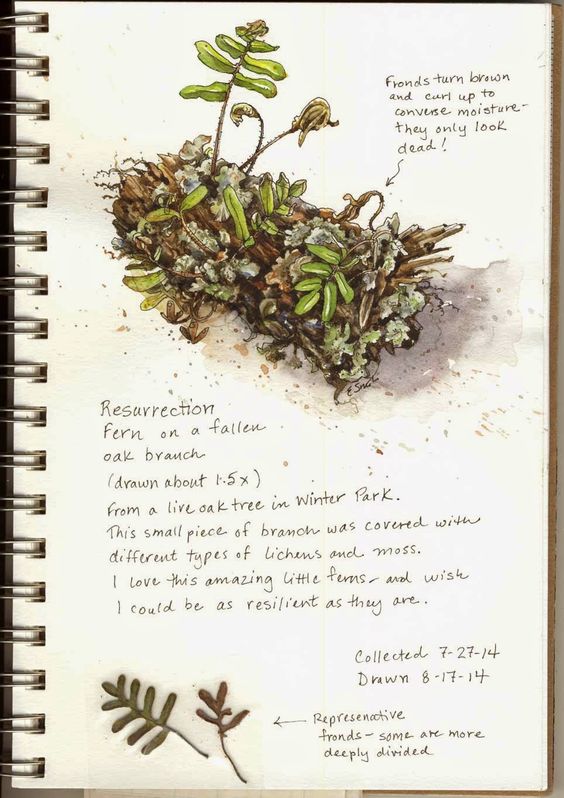 Fronds turn brown
and curl up to
converse moisture-
they only look
dead!
Resurrection
Fern on a fallen
oak branch
(drawn about 1.5x)
From a live oak tree in Winter Park.
This small piece of branch was covered with
different types of lichens and moss.
I love this amazing little ferns - and wish
I could be as resilient as they are.
Collected 7-27-14
Drawn 8-17-14
Represenative
fronds - some are more
deeply divided